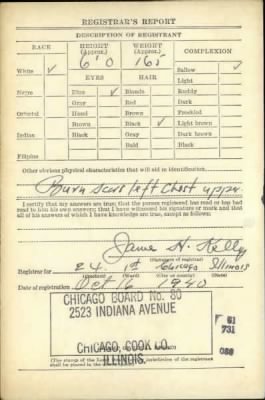 REGISTRAR'S REPORT
DESCRIPTION OF REGISTRANT
RACE HEIGHT (Approx.) WEIGHT (Approx.) COMPLEXION
6' 0 165
White ✓ Sallow ✓
EYES HAIR Light
Negro Blue ✓ Blonde Ruddy
Gray Red Dark
Oriental Hazel Brown Freckled
Brown Black ✓ Light brown
Indian Black Gray Dark brown
Bald Black
Filipino
Other obvious physical characteristics that will aid in identification
Burn Scar left Chest upper
I certify that my answers are true; that the person registered has read or has had
read to him his own answers; that I have witnessed his signature or mark and that
all of his answers of which I have knowledge are true, except as follows:
(Signature of registrar)
Registrar for 24 1st Chicago Illinois
(Precinct) (Ward) (City or county) (State)
Date of registration Oct 16 1940
CHICAGO BOARD No. 80
2523 INDIANA AVENUE
CHICAGO, COOK CO.
ILLINOIS.
61
731
(The stamp of the Local Board jurisdiction of the registrant
shall be placed in the above space.)